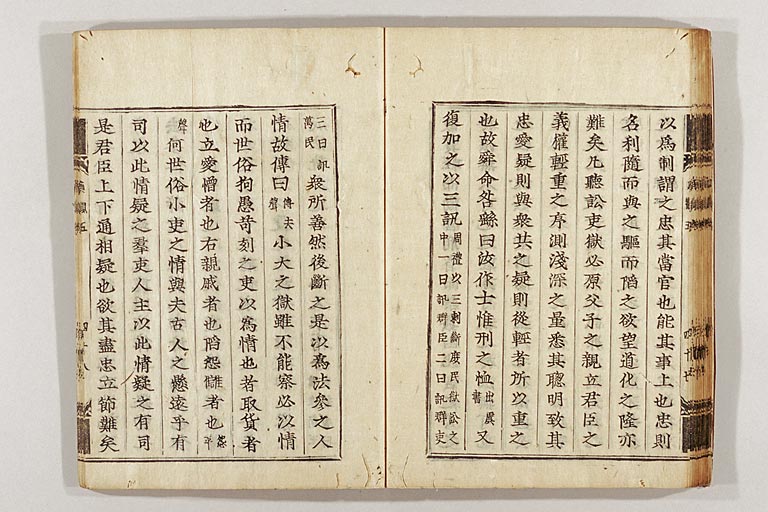 以爲制謂之忠其當官也能其事上也忠則
名利隨而與之驅而陷之欲望道化之隆亦
難矣凡聽訟吏獄必原父子之親立君臣之
義權輕重之序測淺深之量悉其聰明致其
忠愛疑則與衆共之疑則從輕者所以重之
也故舜命咎繇曰汝作士惟刑之恤出虞書又
復加之以三訊周禮以三刺斷庶民獄訟之中一曰訊群臣二曰訊群吏
三曰訊萬民衆所善然後斷之是以爲法參之人
情故傳曰傳去聲小大之獄雖不能察必以情
而世俗拘愚苛刻之吏以爲情也者取貨者
也立愛憎者也右親戚者也陷怨讎者也怨平
聲何世俗小吏之情與夫古人之懸遠乎有
司以此情疑之羣吏人主以此情疑之有司
是君臣上下通相疑也欲其盡忠立節難矣